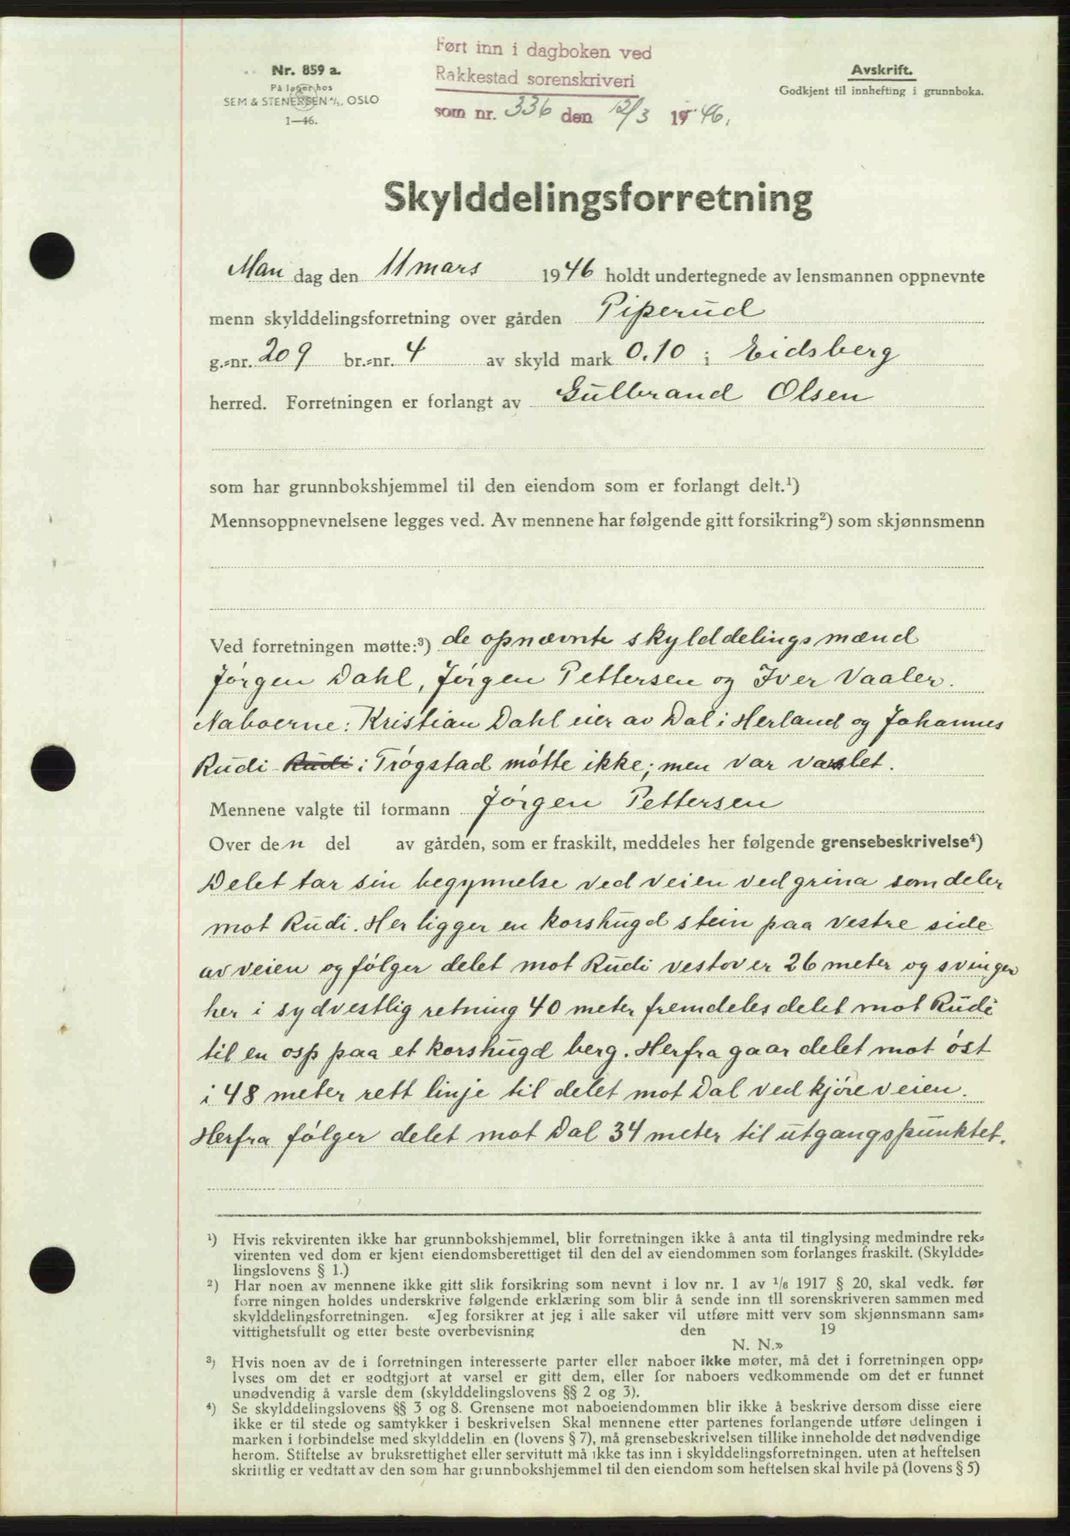 Nr. 859 a.
På lager hos
SEM & STENERSEN A/S, OSLO
1—46.
Ført inn i dagboken ved
Rakkestad sorenskriveri
som nr. 336 den 12/3 1946.
Avskrift.
Godkjent til innhefting i grunnboka.
Skylddelingsforretning
Man dag den 11 mars 1946 holdt undertegnede av lensmannen oppnevnte
menn skylddelingsforretning over gården Piperud
g.=nr. 209 br.=nr. 4 av skyld mark 0.10 i Eidsberg
herred. Forretningen er forlangt av Gulbrand Olsen
som har grunnbokshjemmel til den eiendom som er forlangt delt.¹)
Mennsoppnevnelsene legges ved. Av mennene har følgende gitt forsikring²) som skjønnsmenn
Ved forretningen møtte:³) de opnævnte skylddelingsmænd
Jørgen Dahl, Jørgen Pettersen og Iver Vaaler.
Naboerne: Kristian Dahl eier av Dal i Herland og Johannes
Rudi Rudi i Trøgstad møtte ikke; men var varslet.
Mennene valgte til formann Jørgen Pettersen
Over den del av gården, som er fraskilt, meddeles her følgende grensebeskrivelse⁴)
Delet tar sin begynnelse ved veien ved grina som deler
mot Rudi. Her ligger en korshugd stein paa vestre side
av veien og følger delet mot Rudi vestover 26 meter og svinger
her i sydvestlig retning 40 meter fremdeles delet mot Rudi
til en osp paa et korshugd berg. Herfra gaar delet mot øst
i 48 meter rett linje til delet mot Dal ved kjøreveien.
Herfra følger delet mot Dal 34 meter til utgangspunktet.
¹) Hvis rekvirenten ikke har grunnbokshjemmel, blir forretningen ikke å anta til tinglysing medmindre rek=
virenten ved dom er kjent eiendomsberettiget til den del av eiendommen som forlanges fraskilt. (Skyldde=
lingslovens § 1.)
²) Har noen av mennene ikke gitt slik forsikring som nevnt i lov nr. 1 av 1/6 1917 § 20, skal vedk. før
forre ningen holdes underskrive følgende erklæring som blir å sende inn til sorenskriveren sammen med
skylddelingsforretningen. «Jeg forsikrer at jeg i alle saker vil utføre mitt verv som skjønnsmann sam=
vittighetsfullt og etter beste overbevisning den 19
N. N.»
³) Hvis noen av de i forretningen interesserte parter eller naboer ikke møter, må det i forretningen opp=
lyses om det er godtgjort at varsel er gitt dem, eller for naboers vedkommende om det er funnet
unødvendig å varsle dem (skylddelingslovens §§ 2 og 3).
⁴) Se skylddelingslovens §§ 3 og 8. Grensene mot naboeiendommen blir ikke å beskrive dersom disse eiere
ikke er til stede og samtykker i beskrivelsen Skal mennene etter partenes forlangende utføre delingen i
marken i forbindelse med skylddelin en (lovens § 7), må grensebeskrivelsen tillike inneholde det nødvendige
herom. Stiftelse av bruksrettighet eller servitutt må ikke tas inn i skylddelingsforretningen. uten at heftelsen
skriftlig er vedtatt av den som har grunnbokshjemmel til den eiendom som heftelsen skal hvile på (lovens § 5)